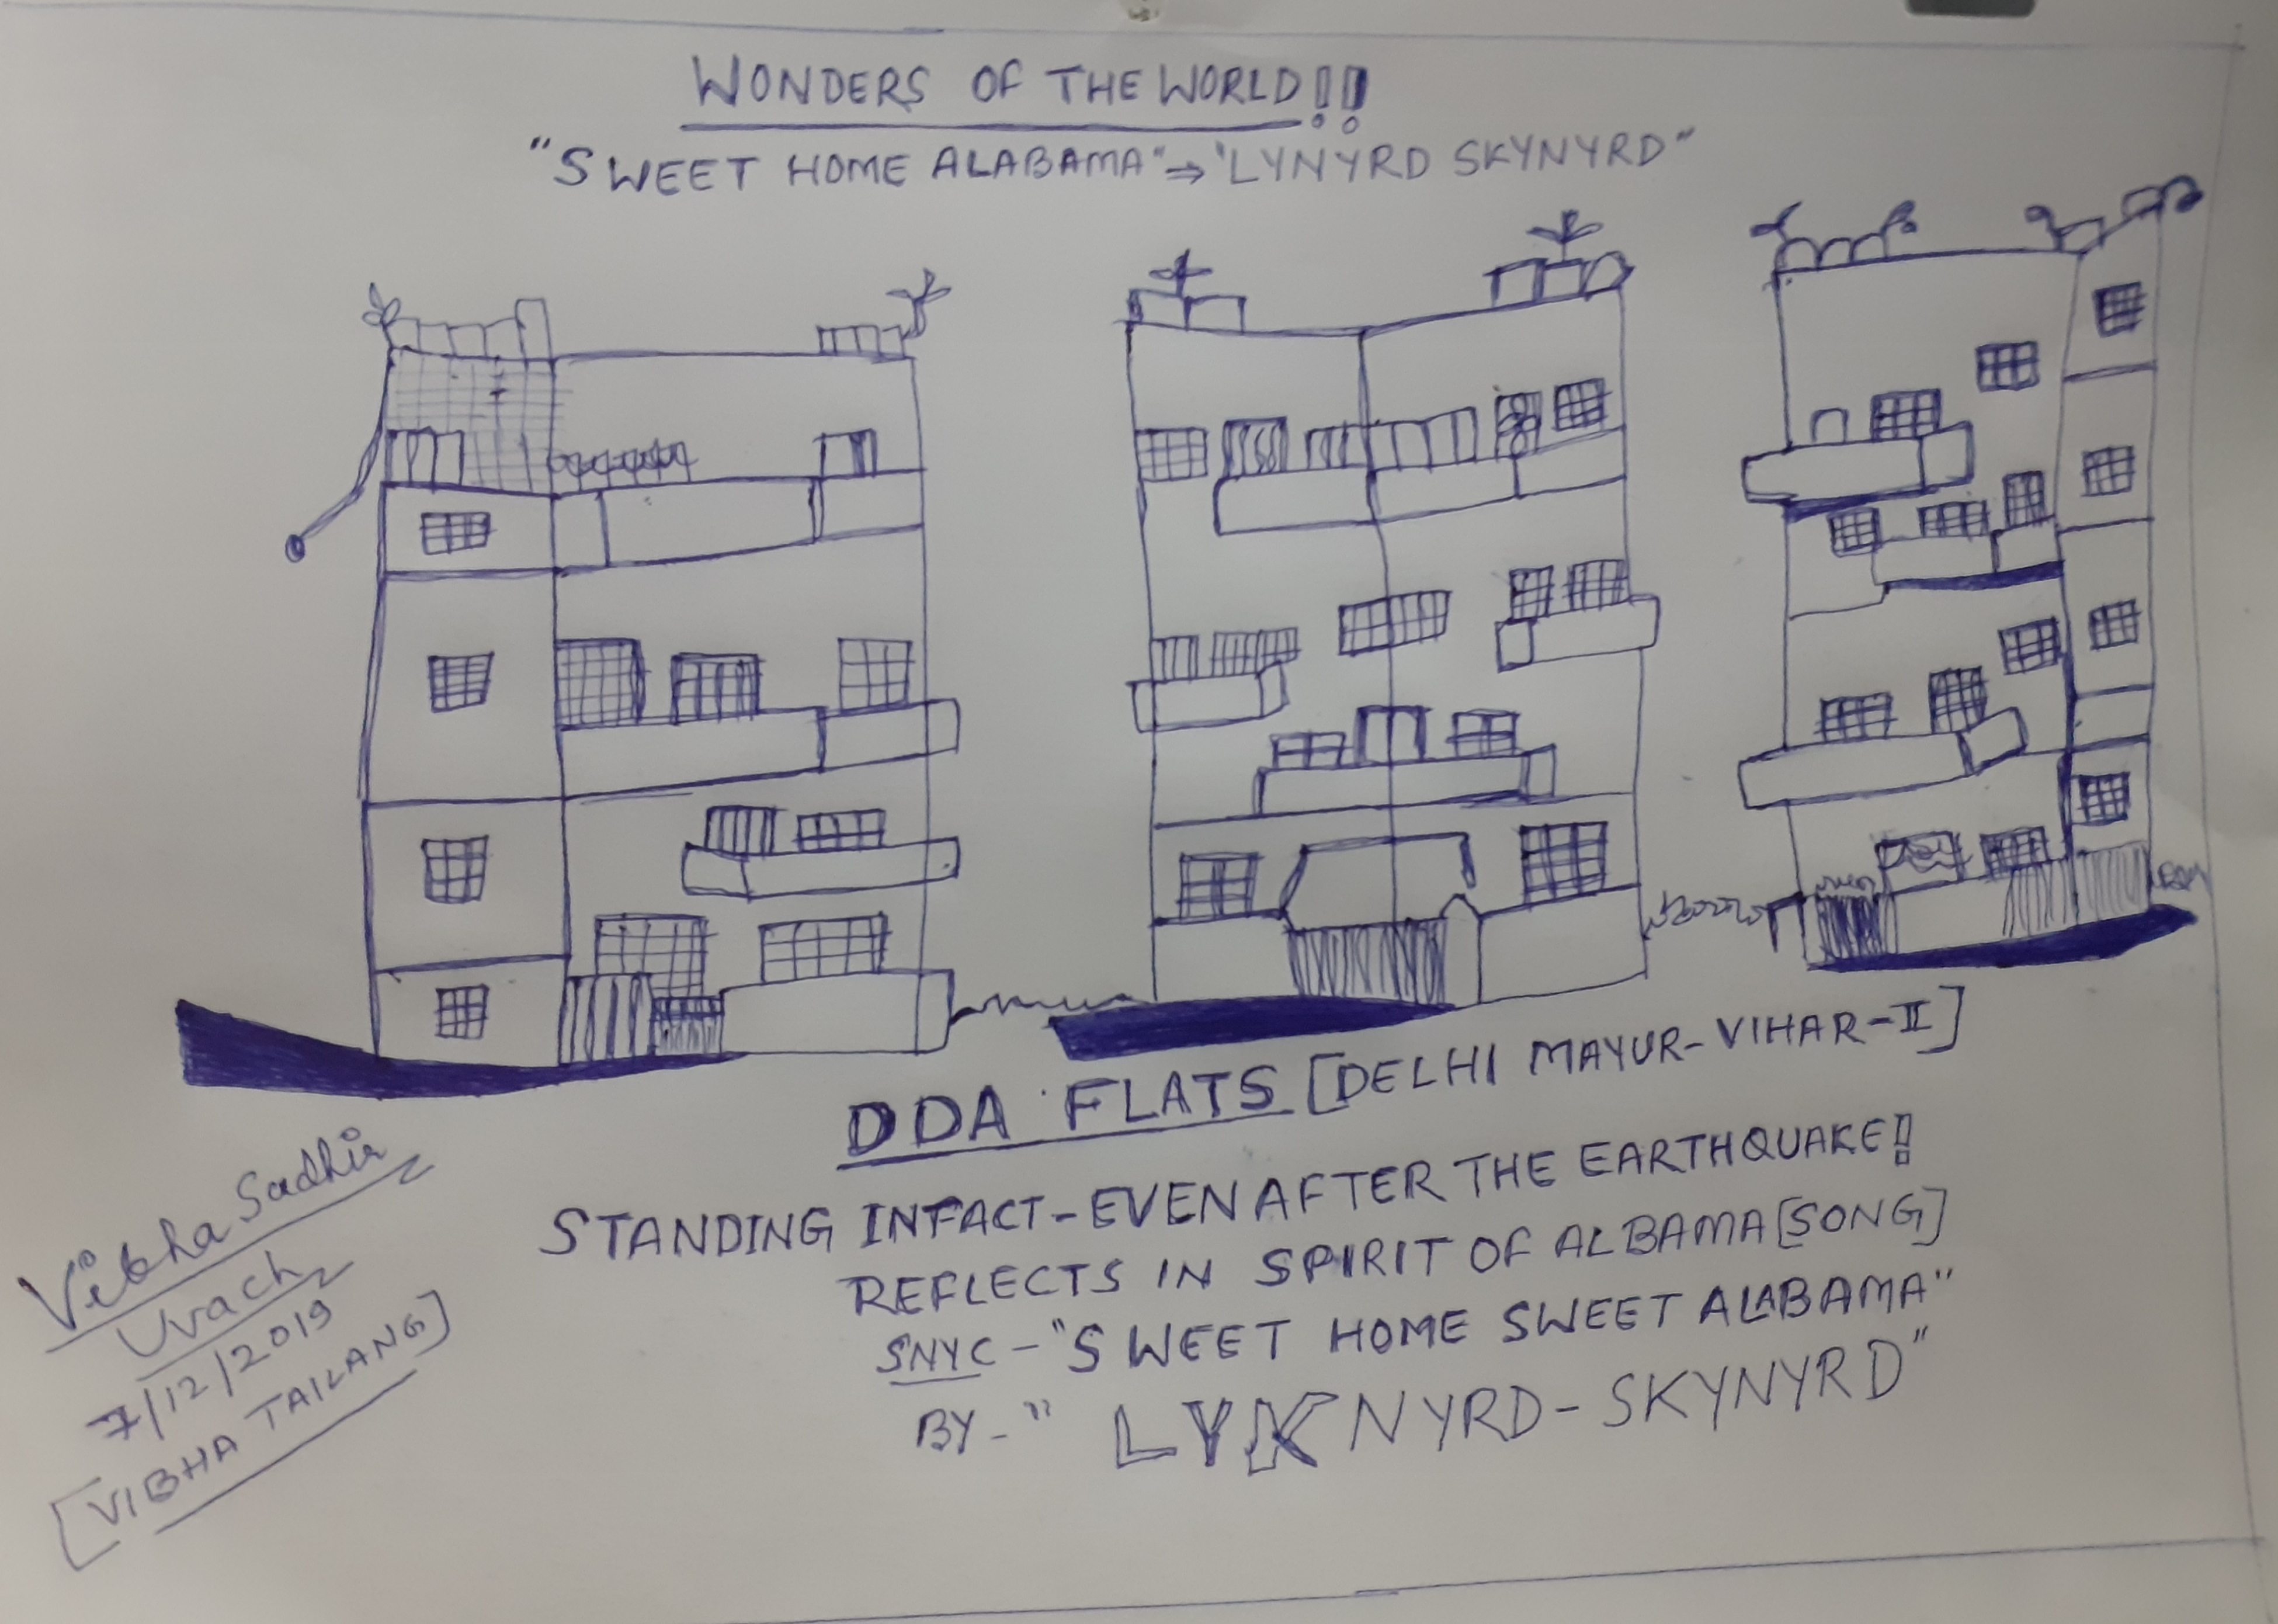 WONDERS OF THE WORLD!!
"SWEET HOME ALABAMA" → "LYNYRD SKYNYRD"
DDA FLATS [DELHI MAYUR-VIHAR-II]
STANDING INTACT-EVEN AFTER THE EARTHQUAKE!
REFLECTS IN SPIRIT OF ALBAMA [SONG]
SNYC - "SWEET HOME SWEET ALABAMA"
BY - " LYKNYRD - SKYNYRD"
Vibha Sudhir
Uvach
7/12/2019
[VIBHA TAILANG]